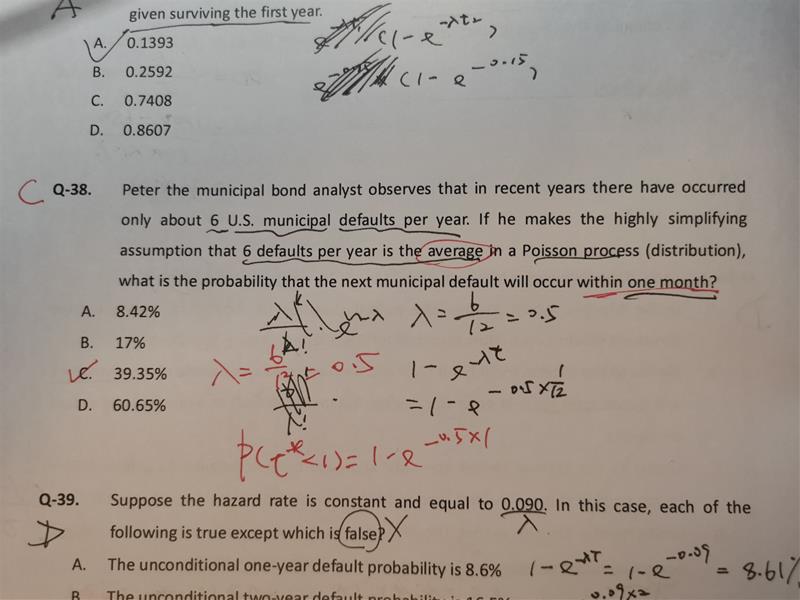 A
given surviving the first year.
A. 0.1393
(1 - e^-λt2,
B. 0.2592
(1 - e^-0.15,
C. 0.7408
D. 0.8607
C
Q-38. Peter the municipal bond analyst observes that in recent years there have occurred
only about 6 U.S. municipal defaults per year. If he makes the highly simplifying
assumption that 6 defaults per year is the average in a Poisson process (distribution),
what is the probability that the next municipal default will occur within one month?
A. 8.42%
λ = 6/12 = 0.5
B. 17%
λ = 6/12 = 0.5
1 - e^-λt
C. 39.35%
= 1 - e^-0.5×1/12
D. 60.65%
P(t*<1) = 1 - e^-0.5×1
Q-39. Suppose the hazard rate is constant and equal to 0.090. In this case, each of the
λ
D
following is true except which is false? X
A. The unconditional one-year default probability is 8.6%
1 - e^-λT = 1 - e^-0.09 = 8.61%
0.09×2
B. The unconditional two-year default probability is